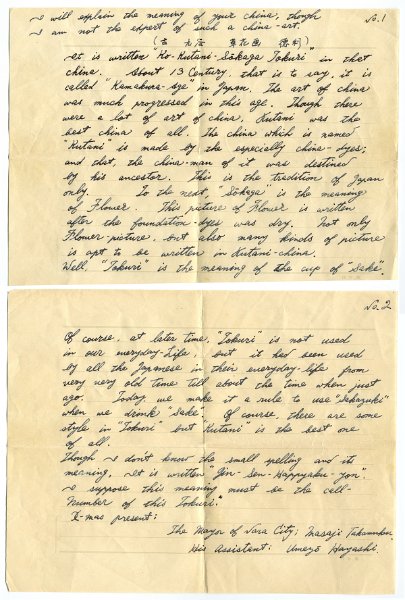 I will explain the meaning of your china, though
No.1
I am not the expert of such a china-art.
(古 九谷 草花画 徳利)
It is written "Ko-Kutani-Sōkaga Tokuri" in that
china. About 13 Century, that is to say, it is
called "Kamakura-Age" in Japan. The art of china
was much progressed in this age. Though there
were a lot of art of china, Kutani was the
best china of all. The china which is named
"Kutani" is made by the especially chine-dyes;
and that, the china-man of it was destined
by his ancestor. This is the tradition of Japan
only. To the next, "Sōkaga" is the meaning
of Flower. This picture of Flower is written
after the foundation-dyes was dry. Not only
Flower-picture, but also many kinds of picture
is apt to be written in Kutani-china.
Well, "Tokuri" is the meaning of the cup of "Sake".
No.2
Of course, at later time, "Tokuri" is not used
in our everyday-life, but it had been used
by all the Japanese in their everyday-life from
very very old time till about the time when just
ago. Today, we make it a rule to use "Sakazuki"
when we drank "Sake". Of course, there are some
style in "Tokuri" but "Kutani" is the best one
of all.
Though I don't know the small spelling and its
meaning, It is written "Jin-Sen-Happyaku-Jon".
I suppose this meaning must be the cell-
Number of this Tokuri."
X-mas present:
The Mayor of Nara City; Masaji
His Assistant: Umezō Hayashi.